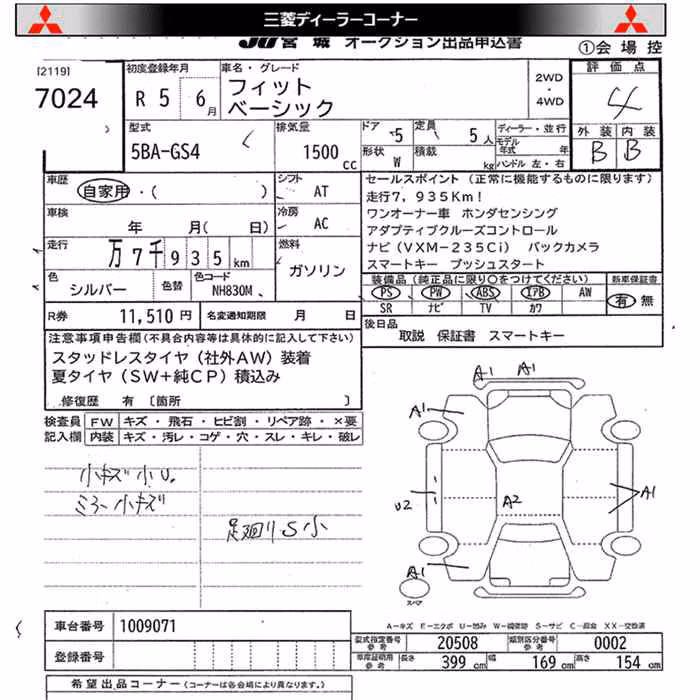 三菱ディーラーコーナー
JU宮城 オークション出品申込書
①会場控
[2119]
7024
初度登録年月
R 5 6月
車名・グレード
フィット
ベーシック
2WD
・
4WD
評価点
4
外装 内装
B B
型式
5BA-GS4
排気量
1500 cc
ドア 5
定員 5人
形状 W
積載 kg
ディーラー・並行
モデル年式 年
ハンドル 左・右
車歴
自家用・( )
シフト
AT
車検
年 月(日)
冷房
AC
走行
万7千935km
燃料
ガソリン
色
シルバー
色替
色コード
NH830M
R券
11,510円
名変通知期限 月 日
セールスポイント (正常に機能するものに限ります)
走行7,935Km!
ワンオーナー車 ホンダセンシング
アダプティブクルーズコントロール
ナビ(VXM-235Ci) バックカメラ
スマートキー プッシュスタート
装備品(純正品に限り〇をつけてください)
PS PW ABS エアB AW
SR ナビ TV カワ
新車保証書
有 無
後日品
取説 保証書 スマートキー
注意事項申告欄(不具合内容等は具体的に記入して下さい)
スタッドレスタイヤ(社外AW)装着
夏タイヤ(SW+純CP)積込み
修復歴 有〔箇所 〕
検査員
記入欄
FW キズ・飛石・ヒビ割・リペア跡・×要
内装 キズ・汚レ・コゲ・穴・スレ・キレ・破レ
小キズ小U.
ミラー小キズ
足廻りS小
A1 A1
A1
U2
A2
A1
A1
スペア
A-キズ E-エクボ U-凹ミ W-補修跡 S-サビ C-腐食 XX-交換済
車台番号
1009071
登録番号
型式指定番号 参考
20508
類別区分番号 参考
0002
車庫証明用 参考
長さ 399cm
幅 169cm
高さ 154cm
希望出品コーナー (コーナーは各会場により異なります。)